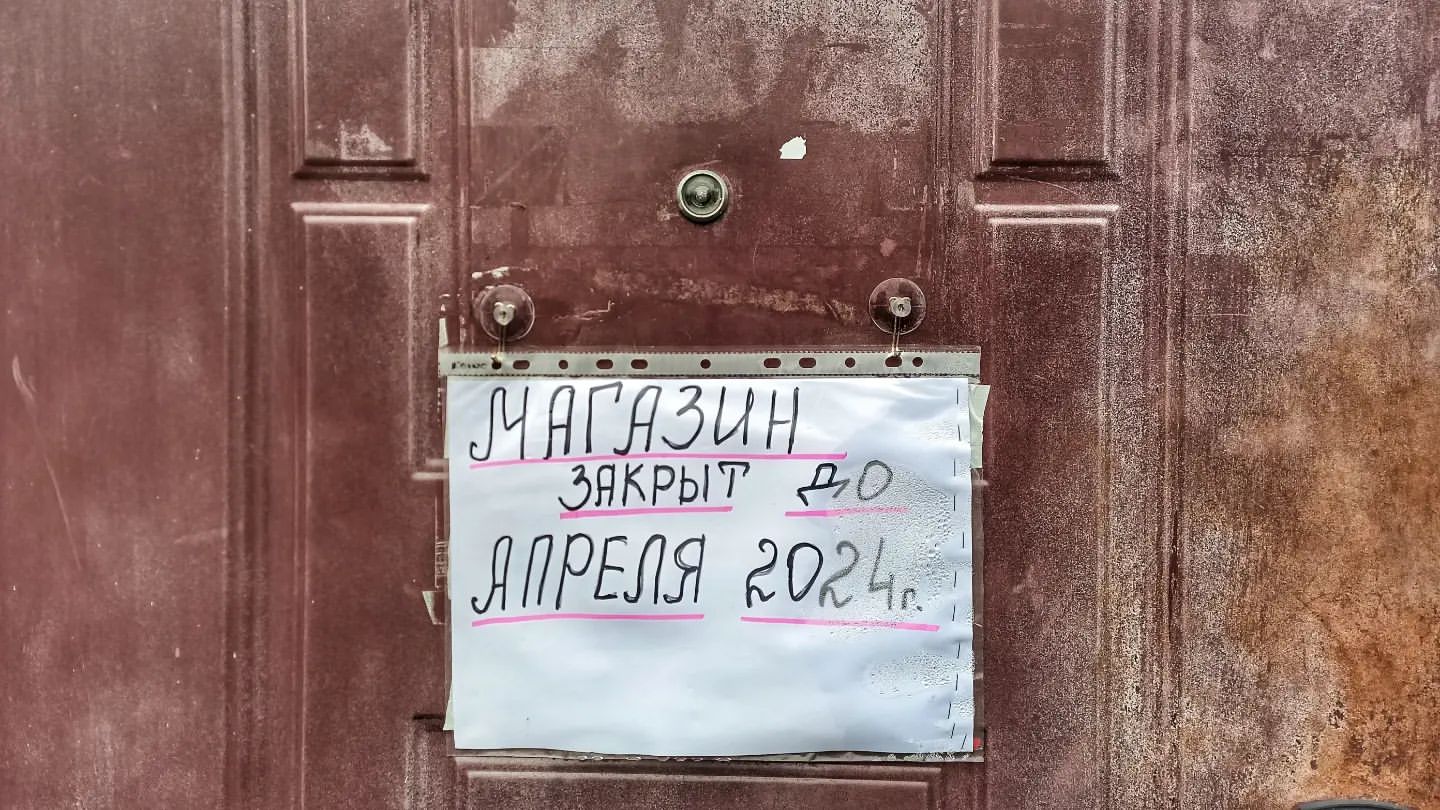 МАГАЗИН
ЗАКРЫТ ДО
АПРЕЛЯ 2024г.